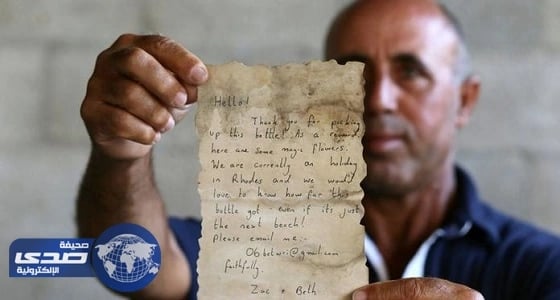 Hello!
Thank you for picking
up this bottle! As a reward
here are some magic flowers.
We are currently on holiday
in Rhodes and we would
love to know how far this
bottle got - even if it's just
the next beach!
Please email me :-
@gmail.com
faithfully
Zac + Beth
صحيفة
صدى
الإلكترونية